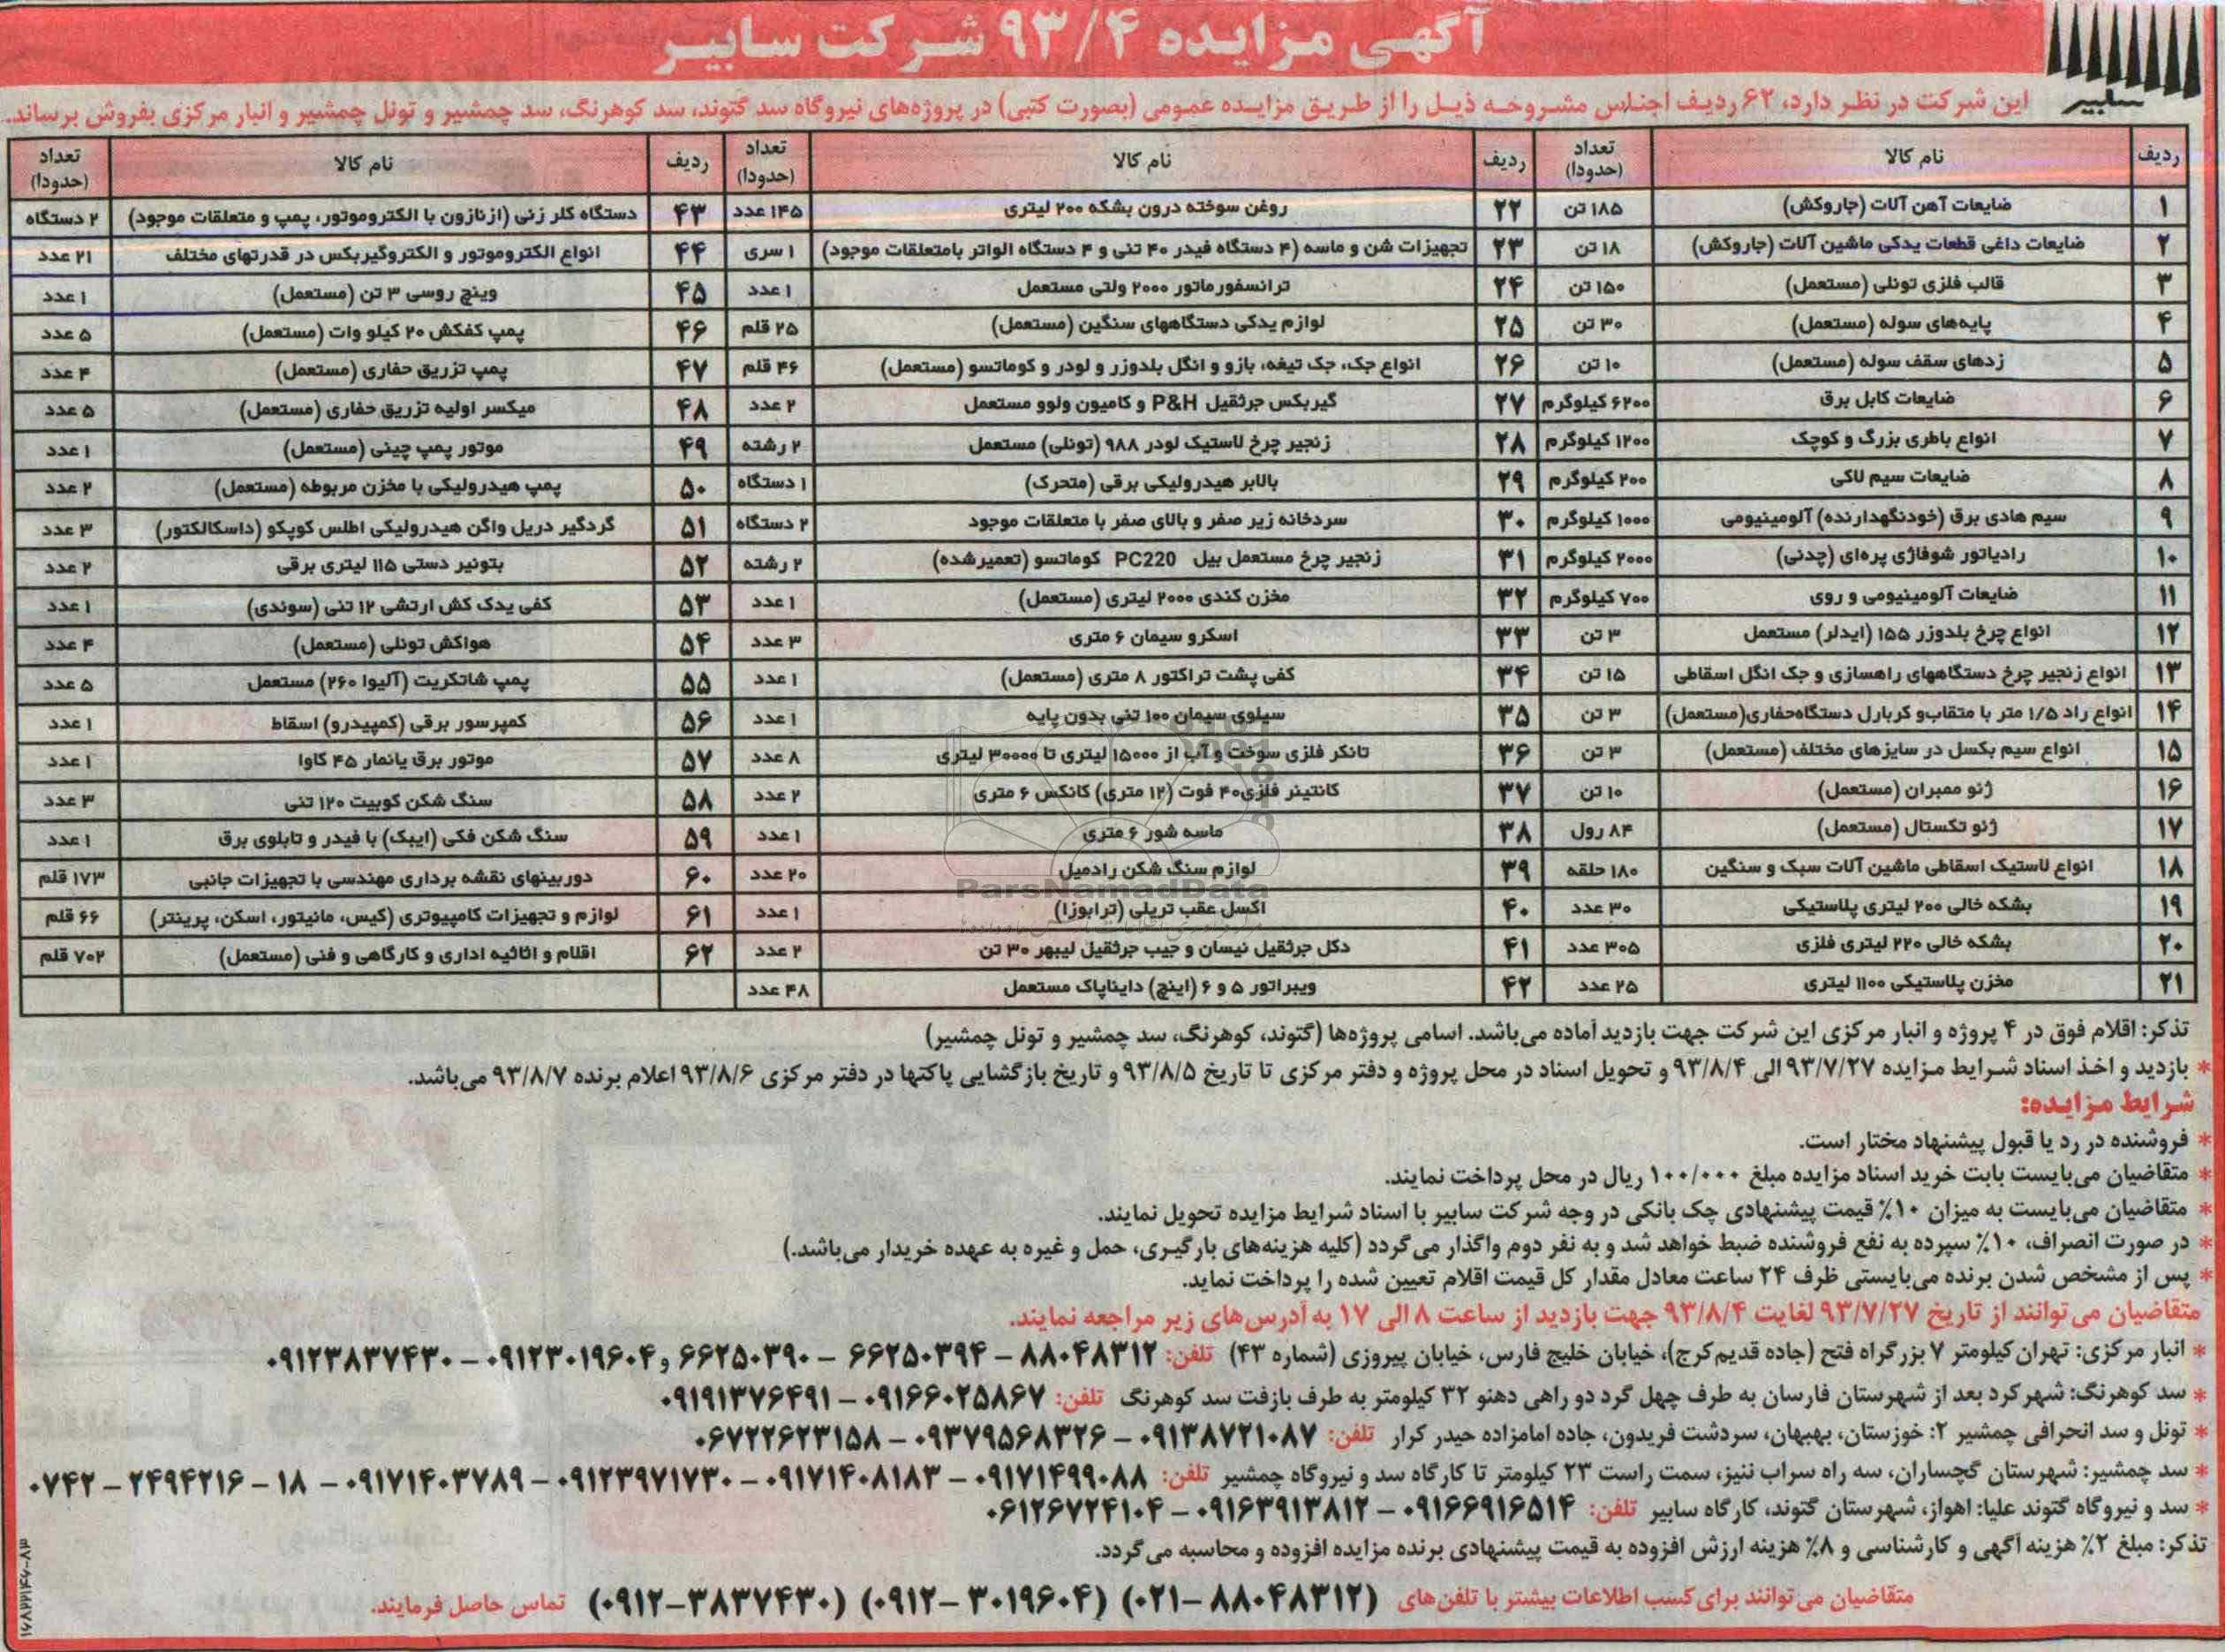 آگهی مزایده ۹۳/۴ شرکت سابیر
سابیر
این شرکت در نظر دارد، ۶۲ ردیف اجناس مشروحه ذیل را از طریق مزایده عمومی (بصورت کتبی) در پروژه‌های نیروگاه سد گتوند، سد کوهرنگ، سد چمشیر و تونل چمشیر و انبار مرکزی بفروش برساند.
ردیف نام کالا تعداد (حدودا)
۱ ضایعات آهن آلات (جاروکش) ۱۸۵ تن
۲ ضایعات داغی قطعات یدکی ماشین آلات (جاروکش) ۱۸ تن
۳ قالب فلزی تونلی (مستعمل) ۱۵۰ تن
۴ پایه‌های سوله (مستعمل) ۳۰ تن
۵ زدهای سقف سوله (مستعمل) ۱۰ تن
۶ ضایعات کابل برق ۶۲۰۰ کیلوگرم
۷ انواع باطری بزرگ و کوچک ۱۲۰۰ کیلوگرم
۸ ضایعات سیم لاکی ۲۰۰ کیلوگرم
۹ سیم هادی برق (خودنگهدارنده) آلومینیومی ۱۰۰۰ کیلوگرم
۱۰ رادیاتور شوفاژی پره‌ای (چدنی) ۲۰۰۰ کیلوگرم
۱۱ ضایعات آلومینیومی و روی ۷۰۰ کیلوگرم
۱۲ انواع چرخ بلدوزر ۱۵۵ (ایدلر) مستعمل ۳ تن
۱۳ انواع زنجیر چرخ دستگاههای راهسازی و جک انگل اسقاطی ۱۵ تن
۱۴ انواع راد ۱/۵ متر با متقاب و کربارل دستگاه حفاری (مستعمل) ۳ تن
۱۵ انواع سیم بکسل در سایزهای مختلف (مستعمل) ۳ تن
۱۶ ژئو ممبران (مستعمل) ۱۰ تن
۱۷ ژئو تکستال (مستعمل) ۸۴ رول
۱۸ انواع لاستیک اسقاطی ماشین آلات سبک و سنگین ۱۸۰ حلقه
۱۹ بشکه خالی ۲۰۰ لیتری پلاستیکی ۳۰ عدد
۲۰ بشکه خالی ۲۲۰ لیتری فلزی ۳۰۵ عدد
۲۱ مخزن پلاستیکی ۱۱۰۰ لیتری ۲۵ عدد
ردیف نام کالا تعداد (حدودا)
۲۲ روغن سوخته درون بشکه ۲۰۰ لیتری ۱۴۵ عدد
۲۳ تجهیزات شن و ماسه (۴ دستگاه فیدر ۴۰ تنی و ۴ دستگاه الواتر بامتعلقات موجود) ۱ سری
۲۴ ترانسفورماتور ۲۰۰۰ ولتی مستعمل ۱ عدد
۲۵ لوازم یدکی دستگاههای سنگین (مستعمل) ۲۵ قلم
۲۶ انواع جک، جک تیغه، بازو و انگل بلدوزر و لودر و کوماتسو (مستعمل) ۴۶ قلم
۲۷ گیربکس جرثقیل P&H و کامیون ولوو مستعمل ۲ عدد
۲۸ زنجیر چرخ لاستیک لودر ۹۸۸ (تونلی) مستعمل ۲ رشته
۲۹ بالابر هیدرولیکی برقی (متحرک) ۱ دستگاه
۳۰ سردخانه زیر صفر و بالای صفر با متعلقات موجود ۲ دستگاه
۳۱ زنجیر چرخ مستعمل بیل PC220 کوماتسو (تعمیرشده) ۲ رشته
۳۲ مخزن کندی ۲۰۰۰ لیتری (مستعمل) ۱ عدد
۳۳ اسکرو سیمان ۶ متری ۳ عدد
۳۴ کفی پشت تراکتور ۸ متری (مستعمل) ۱ عدد
۳۵ سیلوی سیمان ۱۰۰ تنی بدون پایه ۱ عدد
۳۶ تانکر فلزی سوخت و آب از ۱۵۰۰۰ لیتری تا ۳۰۰۰۰ لیتری ۸ عدد
۳۷ کانتینر فلزی ۴۰ فوت (۱۲ متری) کانکس ۶ متری ۲ عدد
۳۸ ماسه شور ۶ متری ۱ عدد
۳۹ لوازم سنگ شکن رادمیل ۲۰ عدد
۴۰ اکسل عقب تریلی (ترابوزا) ۱ عدد
۴۱ دکل جرثقیل نیسان و جیب جرثقیل لیبهر ۳۰ تن ۲ عدد
۴۲ ویبراتور ۵ و ۶ (اینچ) دایناپاک مستعمل ۴۸ عدد
ردیف نام کالا تعداد (حدودا)
۴۳ دستگاه کلر زنی (ازنازون با الکتروموتور، پمپ و متعلقات موجود) ۲ دستگاه
۴۴ انواع الکتروموتور و الکتروگیربکس در قدرتهای مختلف ۲۱ عدد
۴۵ وینچ روسی ۳ تن (مستعمل) ۱ عدد
۴۶ پمپ کفکش ۲۰ کیلو وات (مستعمل) ۵ عدد
۴۷ پمپ تزریق حفاری (مستعمل) ۴ عدد
۴۸ میکسر اولیه تزریق حفاری (مستعمل) ۵ عدد
۴۹ موتور پمپ چینی (مستعمل) ۱ عدد
۵۰ پمپ هیدرولیکی با مخزن مربوطه (مستعمل) ۲ عدد
۵۱ گردگیر دریل واگن هیدرولیکی اطلس کوپکو (داسکالکتور) ۳ عدد
۵۲ بتونیر دستی ۱۱۵ لیتری برقی ۲ عدد
۵۳ کفی یدک کش ارتشی ۱۲ تنی (سوئدی) ۱ عدد
۵۴ هواکش تونلی (مستعمل) ۴ عدد
۵۵ پمپ شاتکریت (آلیوا ۲۶۰) مستعمل ۵ عدد
۵۶ کمپرسور برقی (کمپیدرو) اسقاط ۱ عدد
۵۷ موتور برق یانمار ۴۵ کاوا ۱ عدد
۵۸ سنگ شکن کوبیت ۱۲۰ تنی ۳ عدد
۵۹ سنگ شکن فکی (ایبک) با فیدر و تابلوی برق ۱ عدد
۶۰ دوربینهای نقشه برداری مهندسی با تجهیزات جانبی ۱۷۳ قلم
۶۱ لوازم و تجهیزات کامپیوتری (کیس، مانیتور، اسکن، پرینتر) ۶۶ قلم
۶۲ اقلام و اثاثیه اداری و کارگاهی و فنی (مستعمل) ۷۰۲ قلم
ParsNamadData
تذکر: اقلام فوق در ۴ پروژه و انبار مرکزی این شرکت جهت بازدید آماده می‌باشد. اسامی پروژه‌ها (گتوند، کوهرنگ، سد چمشیر و تونل چمشیر)
* بازدید و اخذ اسناد شرایط مزایده ۹۳/۷/۲۷ الی ۹۳/۸/۴ و تحویل اسناد در محل پروژه و دفتر مرکزی تا تاریخ ۹۳/۸/۵ و تاریخ بازگشایی پاکتها در دفتر مرکزی ۹۳/۸/۶ اعلام برنده ۹۳/۸/۷ می‌باشد.
شرایط مزایده:
* فروشنده در رد یا قبول پیشنهاد مختار است.
* متقاضیان می‌بایست بابت خرید اسناد مزایده مبلغ ۱۰۰/۰۰۰ ریال در محل پرداخت نمایند.
* متقاضیان می‌بایست به میزان ۱۰٪ قیمت پیشنهادی چک بانکی در وجه شرکت سابیر با اسناد شرایط مزایده تحویل نمایند.
* در صورت انصراف، ۱۰٪ سپرده به نفع فروشنده ضبط خواهد شد و به نفر دوم واگذار می‌گردد (کلیه هزینه‌های بارگیری، حمل و غیره به عهده خریدار می‌باشد.)
* پس از مشخص شدن برنده می‌بایستی ظرف ۲۴ ساعت معادل مقدار کل قیمت اقلام تعیین شده را پرداخت نماید.
متقاضیان می‌توانند از تاریخ ۹۳/۷/۲۷ لغایت ۹۳/۸/۴ جهت بازدید از ساعت ۸ الی ۱۷ به آدرس‌های زیر مراجعه نمایند.
* انبار مرکزی: تهران کیلومتر ۷ بزرگراه فتح (جاده قدیم کرج)، خیابان خلیج فارس، خیابان پیروزی (شماره ۴۳) تلفن: ۸۸۰۴۸۳۱۲ – ۶۶۲۵۰۳۹۴ – ۶۶۲۵۰۳۹۰ و ۰۹۱۲۳۰۱۹۶۰۴ – ۰۹۱۲۳۸۳۷۴۳۰
* سد کوهرنگ: شهرکرد بعد از شهرستان فارسان به طرف چهل گرد دو راهی دهنو ۳۲ کیلومتر به طرف بازفت سد کوهرنگ تلفن: ۰۹۱۶۶۰۲۵۸۶۷ – ۰۹۱۹۱۳۷۶۴۹۱
* تونل و سد انحرافی چمشیر ۲: خوزستان، بهبهان، سردشت فریدون، جاده امامزاده حیدر کرار تلفن: ۰۹۱۳۸۷۲۱۰۸۷ – ۰۹۳۷۹۵۶۸۳۲۶ – ۰۶۷۲۲۶۲۳۱۵۸
* سد چمشیر: شهرستان گچساران، سه راه سراب ننیز، سمت راست ۲۳ کیلومتر تا کارگاه سد و نیروگاه چمشیر تلفن: ۰۹۱۷۱۴۹۹۰۸۸ – ۰۹۱۷۱۴۰۸۱۸۳ – ۰۹۱۲۳۹۷۱۷۳۰ – ۰۹۱۷۱۴۰۳۷۸۹ – ۱۸ – ۲۴۹۴۲۱۶ – ۰۷۴۲
* سد و نیروگاه گتوند علیا: اهواز، شهرستان گتوند، کارگاه سابیر تلفن: ۰۹۱۶۶۹۱۶۵۱۴ – ۰۹۱۶۳۹۱۳۸۱۲ – ۰۶۱۲۶۷۲۴۱۰۴
تذکر: مبلغ ۲٪ هزینه آگهی و کارشناسی و ۸٪ هزینه ارزش افزوده به قیمت پیشنهادی برنده مزایده افزوده و محاسبه می‌گردد.
متقاضیان می‌توانند برای کسب اطلاعات بیشتر با تلفن‌های (۸۸۰۴۸۳۱۲–۰۲۱) (۳۰۱۹۶۰۴–۰۹۱۲) (۳۸۳۷۴۳۰–۰۹۱۲) تماس حاصل فرمایند.